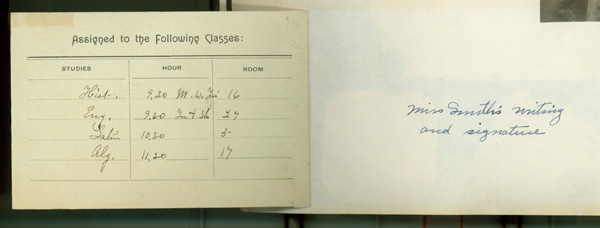 Assigned to the Following Classes:
STUDIES HOUR ROOM
Hist. 9.20 M. W. Fri 16
Eng. 9.20 Tu & Th 27
Latin 10.20 5
Alg. 11.20 17
Miss Smith's writing
and signature